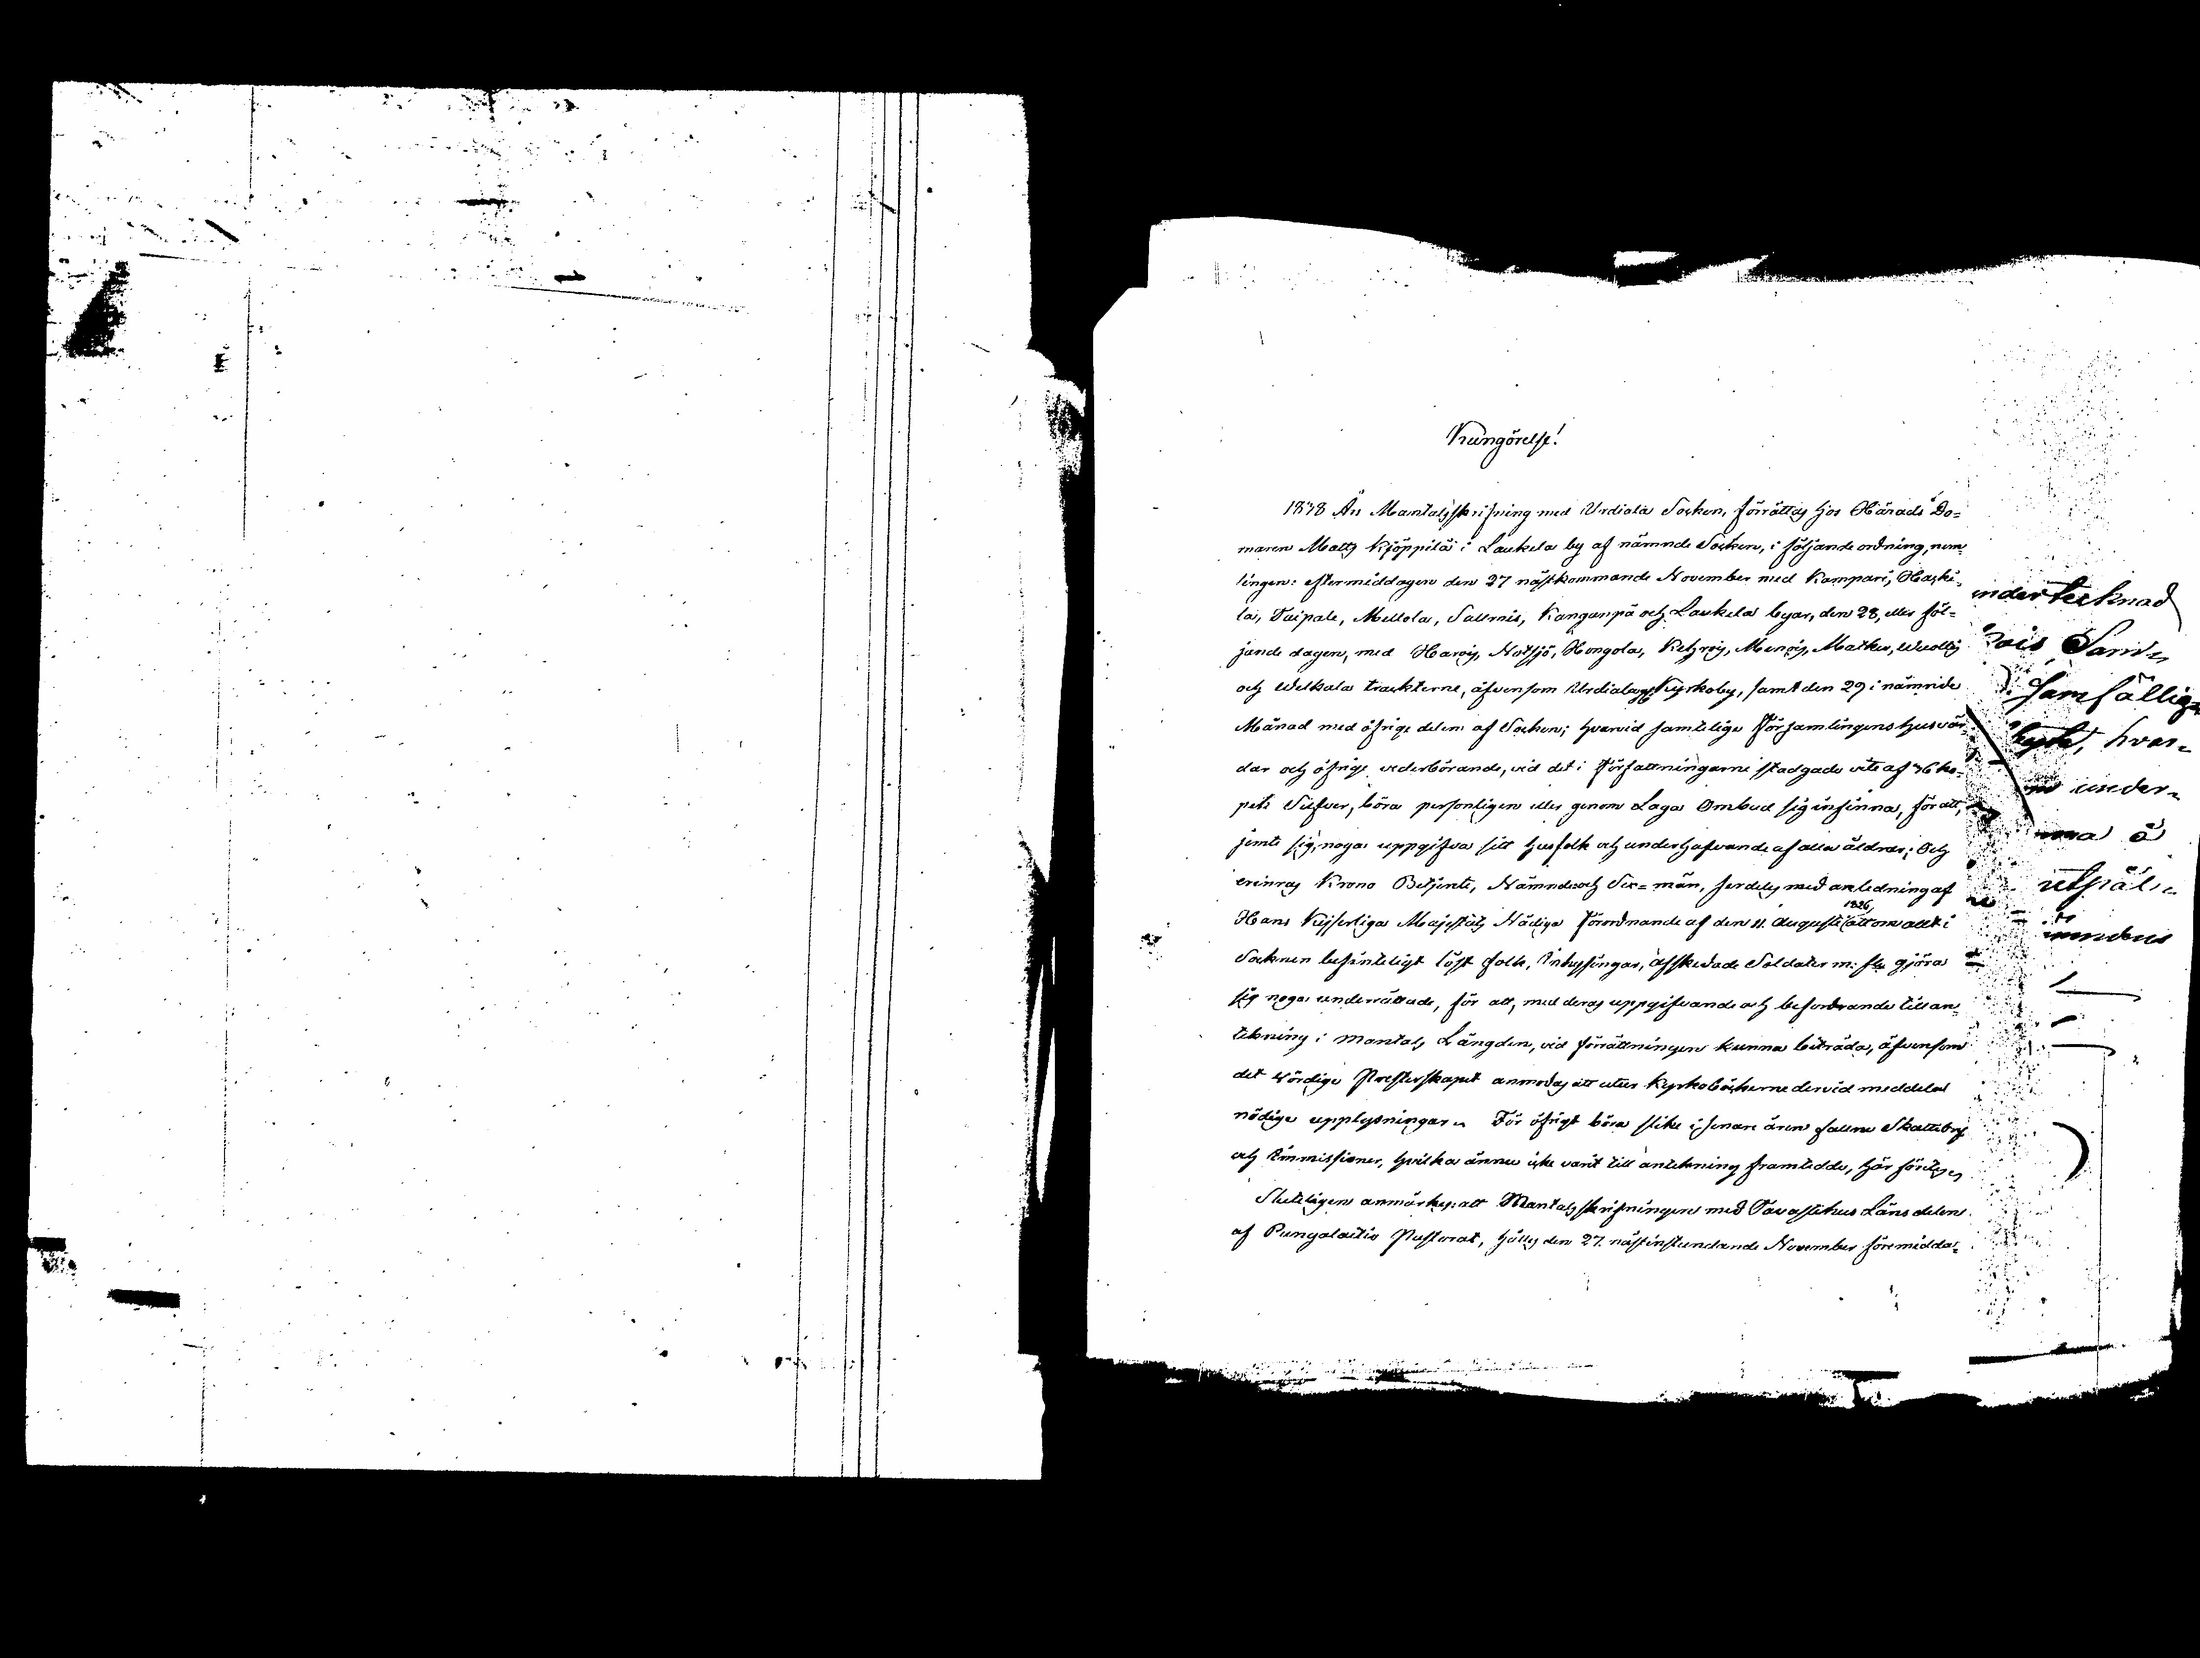 Kungörelse!
1838 Års Mantalsskrifning med Urdiala Socken, förrättas hos Härads Do=
maren Matts Kjöppilä i Laukela by af nämnde Socken, i följande ordning, nem=
ligen: eftermiddagen den 27 nästkommande November med Kampari, Haski=
la, Taipale, Mellola, Salmis, Kanganpä och Laukela byar, den 28, eller föl=
jande dagen, med Haros, Notsjö, Hongola, Kehrois, Menois, Matku, Wuoltis
och Welkala trackterne, äfvensom Urdiala Kyrkoby, samt den 29 i nämnde
Månad med öfrige delen af Socken; hvarvid samtelige Församlingens husvär=
dar och öfrige vederbörande, vid det i Författningarne stadgade vite af 96 ko=
pek Silfver, böra personligen eller genom Laga Ombud sig infinna, för att,
jemte sig, noga uppgifva sitt husfolk och underhafvande af alla åldrar; Och
erinras Krono Betjente, Nämnde och Sex=män, serdeles med anledning af
Hans Kejserliga Majestäts Nådiga Förordnande af den 11. Augusti 1826, att om allt i
Socknen befinteligt löst folk, Inhysingar, afskedade Soldater m: fl: gjöra
sig noga underrättade, för att, med deras uppgifvande och befordrande till an=
tekning i Mantals Längden, vid förrättningen kunna biträda, äfvensom
det wördige Presterskapet anmodas att utur Kyrkoböckerne dervid meddela
nödige upplysningar. För öfrigt böra slike i senare åren fallne Skattebref
och Immissioner, hvilka ännu icke varit till antekning framtedde, här företes
Sluteligen anmärkes: att Mantalsskrifningen med Tavastehus Läns delen
af Pungalaitio Pastorat, hålles den 27. nästinstundande November föremidda=
undertecknad
Sam=
samfällig
hvar=
under=
å